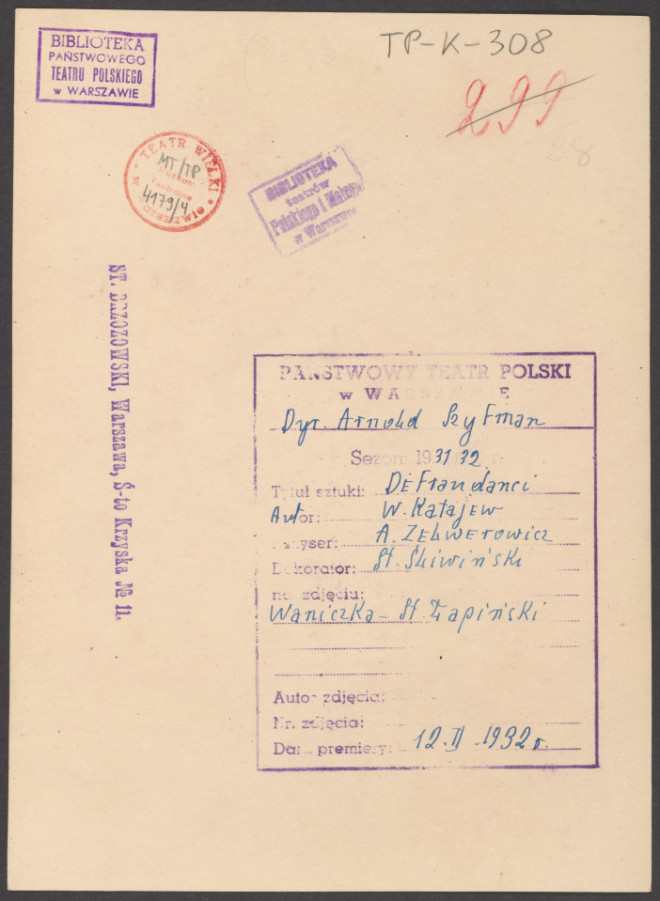 BIBLIOTEKA
PAŃSTWOWEGO
TEATRU POLSKIEGO
w WARSZAWIE
TP-K-308
299
28
TEATR WIELKI
MT/TP
4179/4
BIBLIOTEKA
teatrów
Polskiego i Małego
w Warszawie
ST. BRZOZOWSKI, Warszawa, Ś-to Krzyska № 11.
PAŃSTWOWY TEATR POLSKI
w WARSZAWIE
Dyr. Arnold Szyfman
Sezon 1931/32 r.
Tytuł sztuki: Defraudanci
Autor: W. Katajew
Reżyser: A. Zelwerowicz
Dekorator: St. Śliwiński
na zdjęciu:
Waniczka - St. Łapiński
Autor zdjęcia:
Nr. zdjęcia:
Data premiery: 12.II.1932 r.